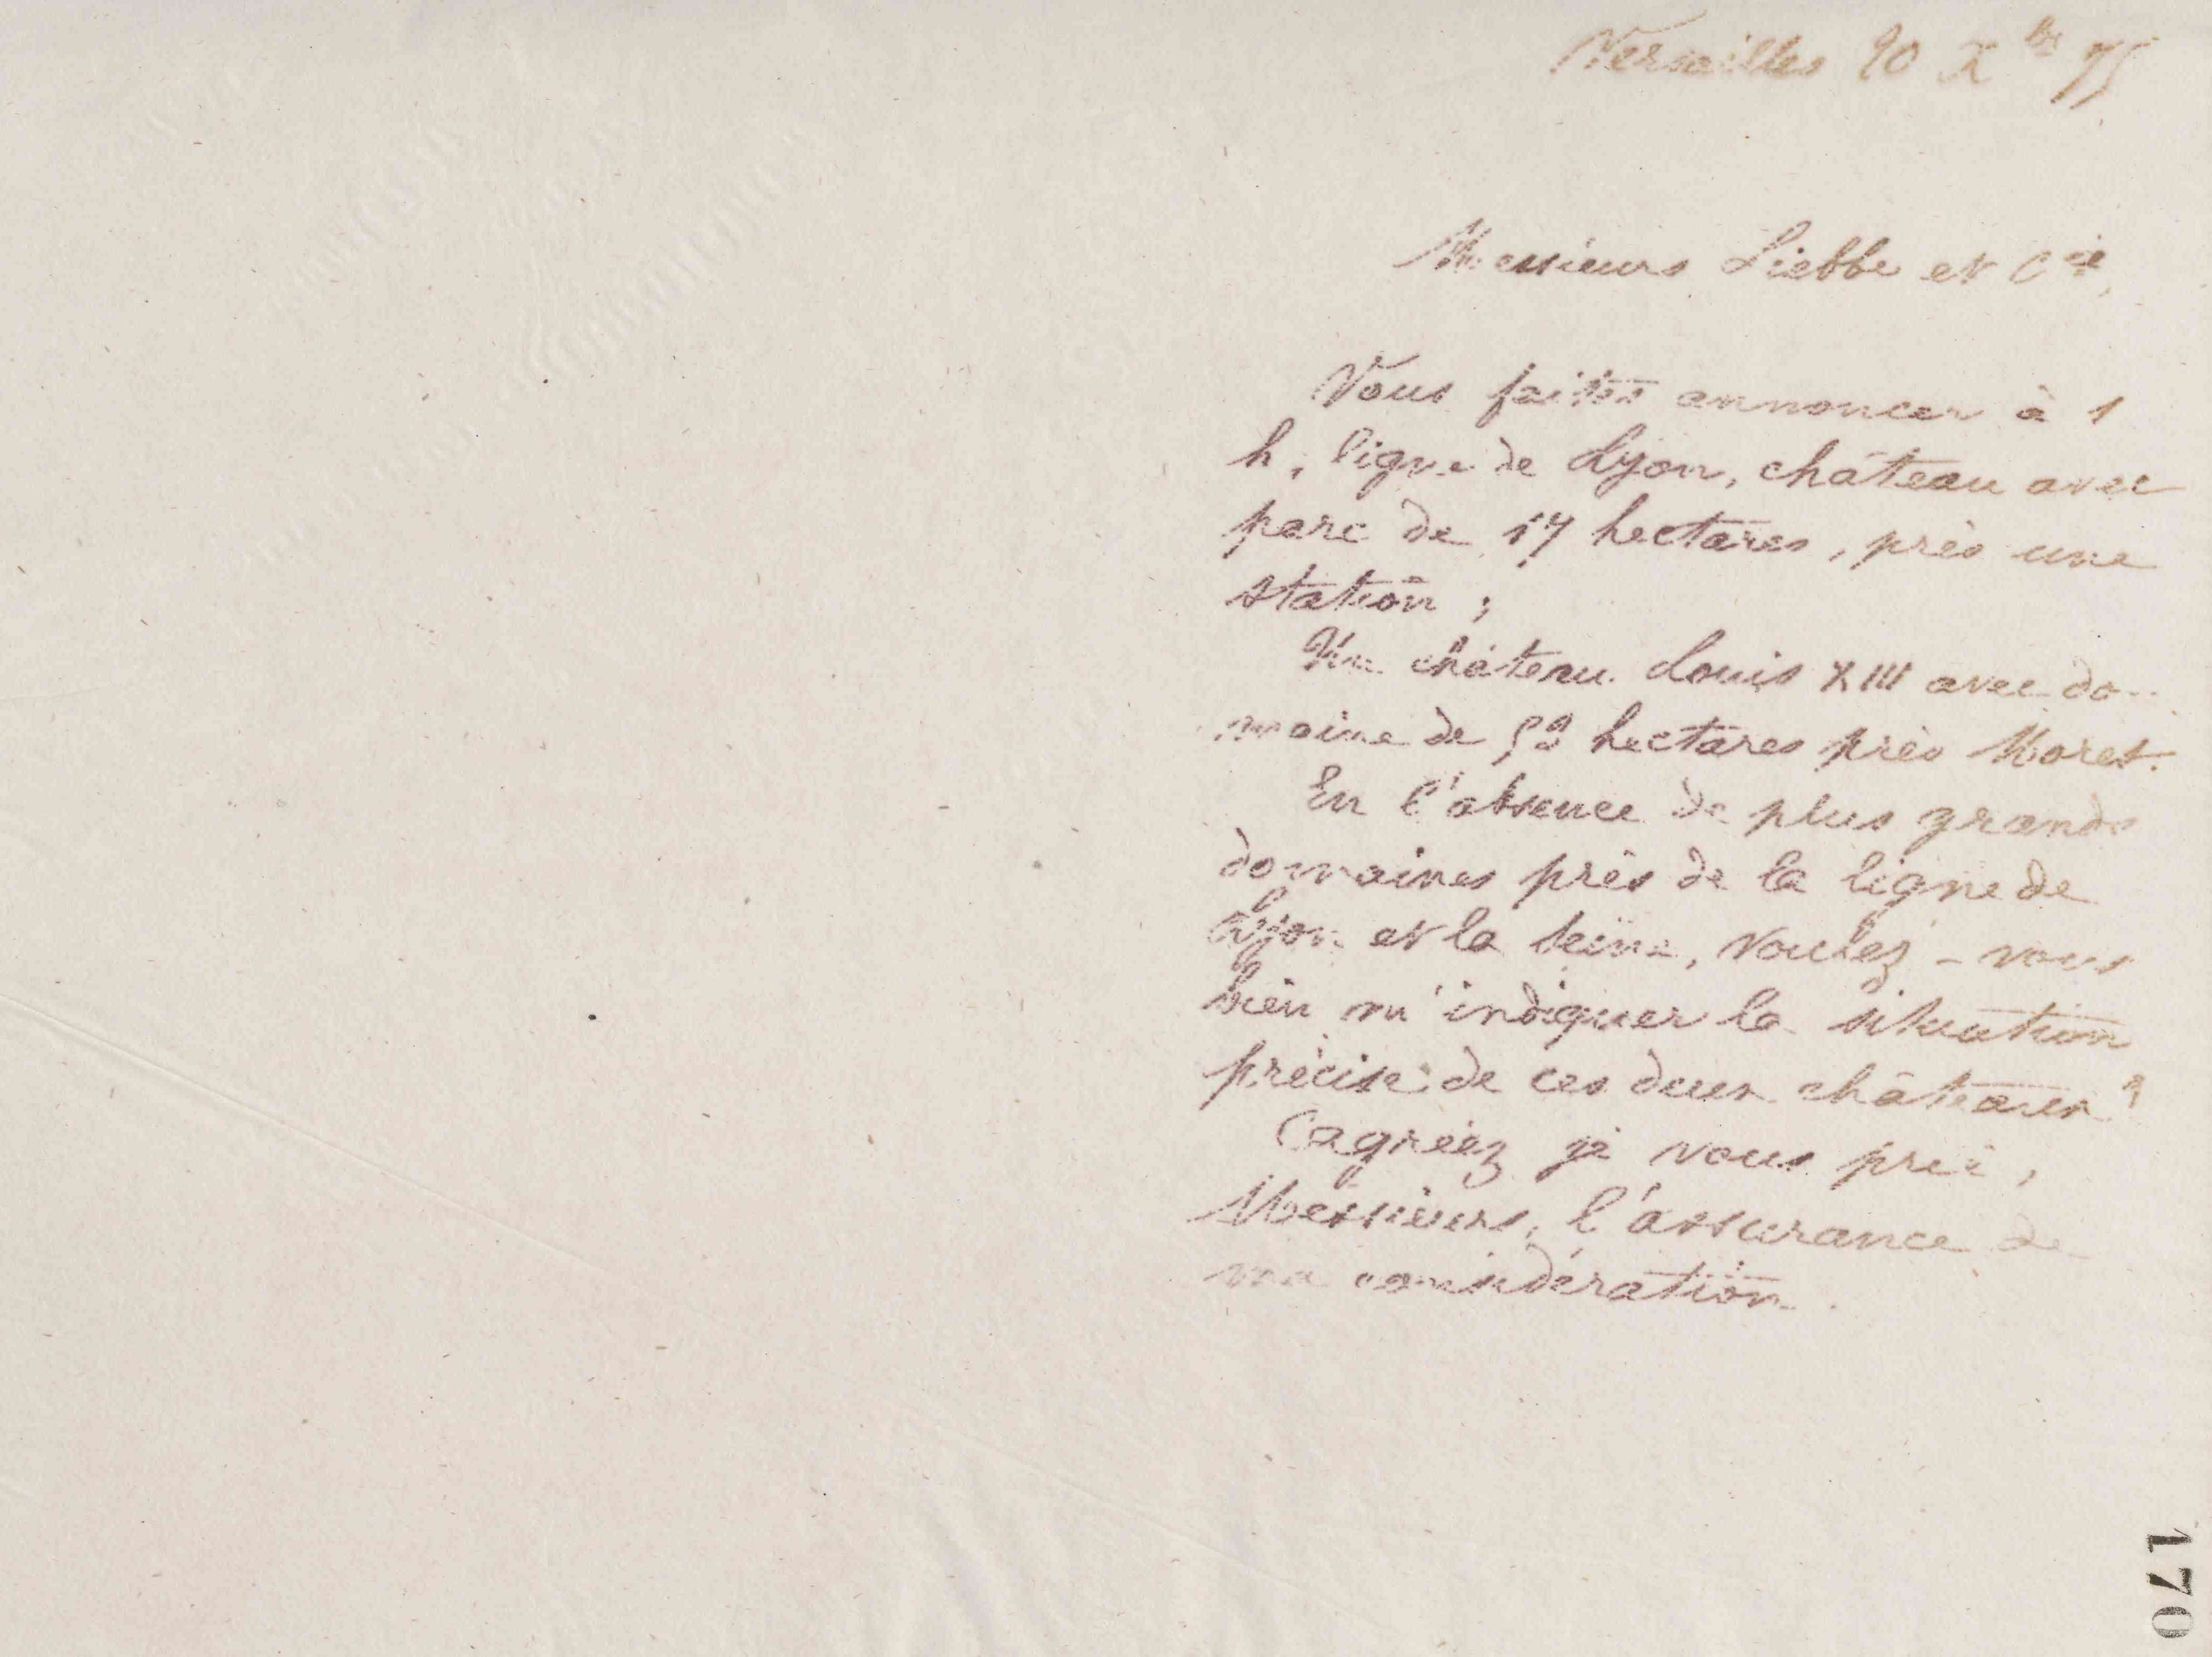 Versailles 20 Xbre 75
Messieurs Liebbe et Cie,
Vous faites annoncer à 1
h, ligne de Lyon, château avec
parc de 17 hectares, près une
station ;
Un château Louis XIII avec do-
maine de 52 hectares près Moret.
En l'absence de plus grands
domaines près de la ligne de
Lyon et la Seine, voulez-vous
bien m'indiquer la situation
précise de ces deux châteaux ?
Agréez je vous prie,
Messieurs, l'assurance de
ma considération.
170